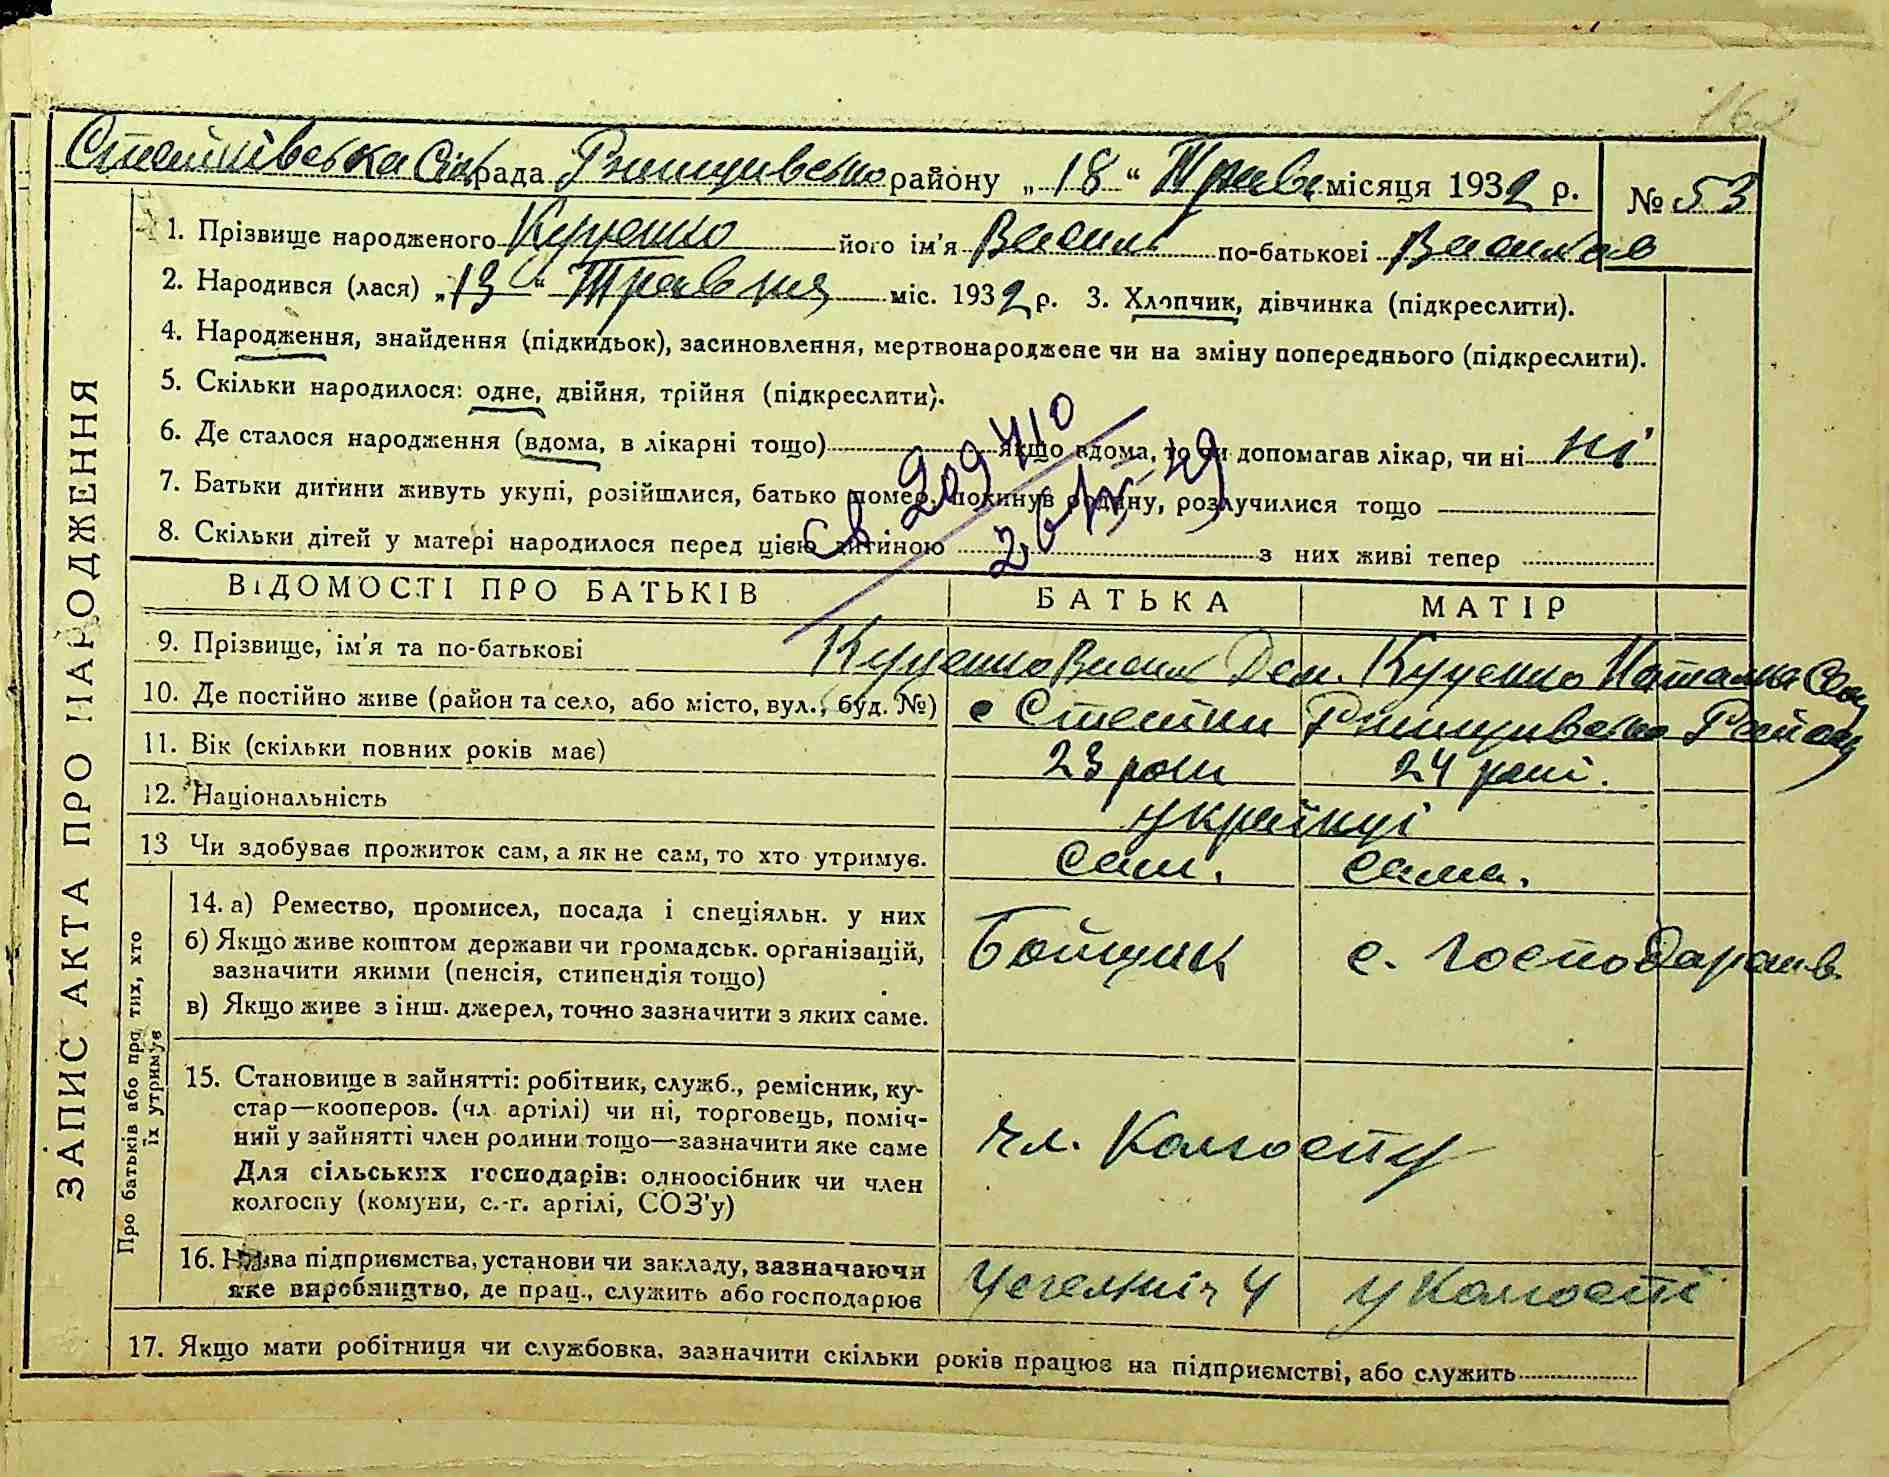 162
Стайківська Сільрада Ржищівсько району „18“ Трав. місяця 1932 р. № 53
1. Прізвище народженого Куценко його ім'я Василь по-батькові Васильов
2. Народився (лася) „13“ Травня міс. 1932 р. 3. Хлопчик, дівчинка (підкреслити).
4. Народження, знайдення (підкидьок), засиновлення, мертвонароджене чи на зміну попереднього (підкреслити).
5. Скільки народилося: одне, двійня, трійня (підкреслити).
6. Де сталося народження (вдома, в лікарні тощо) якщо вдома, то чи допомагав лікар, чи ні ні
7. Батьки дитини живуть укупі, розійшлися, батько помер, покинув родину, розлучилися тощо
8. Скільки дітей у матері народилося перед цією дитиною з них живі тепер
ЗАПИС АКТА ПРО НАРОДЖЕННЯ
ВІДОМОСТІ ПРО БАТЬКІВ БАТЬКА МАТІР
9. Прізвище, ім'я та по-батькові Куценко Васил Дем. Куценко Наталка
10. Де постійно живе (район та село, або місто, вул., буд. №) с Стайки Ржищивсько Району
11. Вік (скільки повних років має) 23 роки 24 рокі.
12. Національність українці
13 Чи здобував прожиток сам, а як не сам, то хто утримує. Сам. Сама.
Про батьків або про тих, хто їх утримує
14. а) Ремество, промисел, посада і спеціяльн. у них
б) Якщо живе коштом держави чи громадськ. організацій,
зазначити якими (пенсія, стипендія тощо) с. господарств.
в) Якщо живе з інш. джерел, точно зазначити з яких саме.
15. Становище в зайнятті: робітник, служб., ремісник, ку-
стар—кооперов. (чл. артілі) чи ні, торговець, поміч-
ний у зайнятті член родини тощо—зазначити яке саме чл. Колгоспу
Для сільських господарів: одноосібник чи член
колгоспу (комуни, с.-г. артілі, СОЗ'у)
16. Назва підприємства, установи чи закладу, зазначаючи
яке виробництво, де прац., служить або господарює у Колгоспі
17. Якщо мати робітниця чи службовка, зазначити скільки років працює на підприємстві, або служить